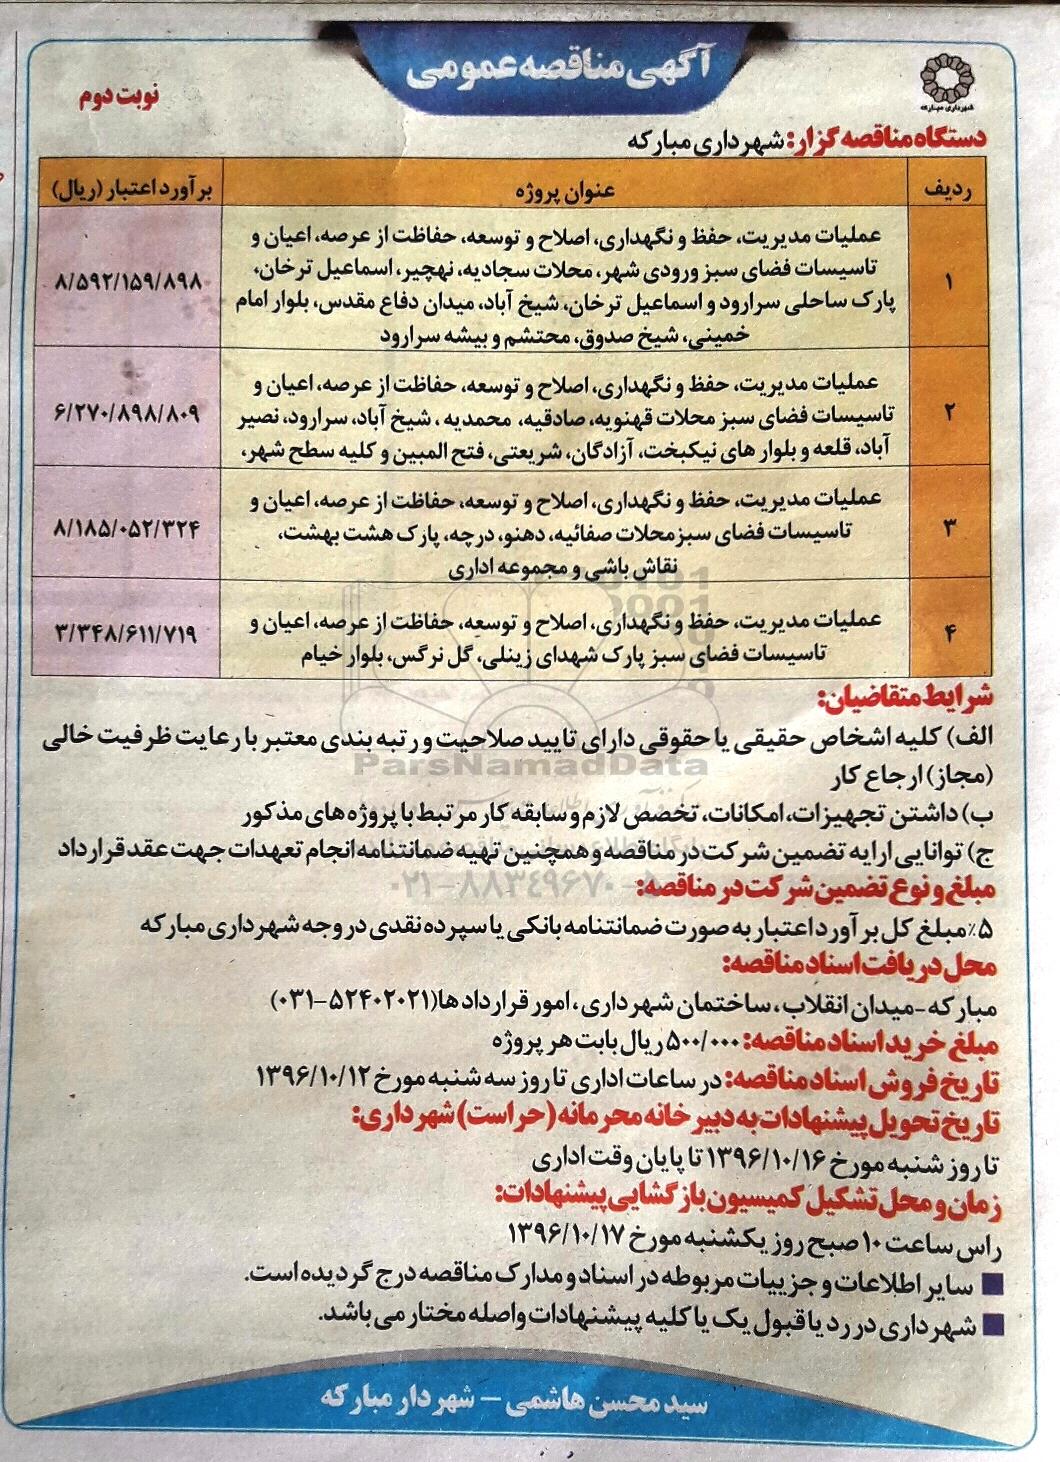 آگهی مناقصه عمومی
شهرداری مبارکه
نوبت دوم
دستگاه مناقصه گزار: شهرداری مبارکه
ردیف
عنوان پروژه
برآورد اعتبار (ریال)
۱
عملیات مدیریت، حفظ و نگهداری، اصلاح و توسعه، حفاظت از عرصه، اعیان و
تاسیسات فضای سبز ورودی شهر، محلات سجادیه، نهچیر، اسماعیل ترخان،
پارک ساحلی سرارود و اسماعیل ترخان، شیخ آباد، میدان دفاع مقدس، بلوار امام
خمینی، شیخ صدوق، محتشم و بیشه سرارود
۸/۵۹۲/۱۵۹/۸۹۸
۲
عملیات مدیریت، حفظ و نگهداری، اصلاح و توسعه، حفاظت از عرصه، اعیان و
تاسیسات فضای سبز محلات قهنویه، صادقیه، محمدیه ، شیخ آباد، سرارود، نصیر
آباد، قلعه و بلوار های نیکبخت، آزادگان، شریعتی، فتح المبین و کلیه سطح شهر،
۶/۲۷۰/۸۹۸/۸۰۹
۳
عملیات مدیریت، حفظ و نگهداری، اصلاح و توسعه، حفاظت از عرصه، اعیان و
تاسیسات فضای سبز محلات صفائیه، دهنو، درچه، پارک هشت بهشت،
نقاش باشی و مجموعه اداری
۸/۱۸۵/۰۵۲/۳۲۴
۴
عملیات مدیریت، حفظ و نگهداری، اصلاح و توسعه، حفاظت از عرصه، اعیان و
تاسیسات فضای سبز پارک شهدای زینلی، گل نرگس، بلوار خیام
۳/۳۴۸/۶۱۱/۷۱۹
شرایط متقاضیان:
الف) کلیه اشخاص حقیقی یا حقوقی دارای تایید صلاحیت و رتبه بندی معتبر با رعایت ظرفیت خالی
(مجاز) ارجاع کار
ParsNamadData
ب) داشتن تجهیزات، امکانات، تخصص لازم و سابقه کار مرتبط با پروژه های مذکور
ج) توانایی ارایه تضمین شرکت در مناقصه و همچنین تهیه ضمانتنامه انجام تعهدات جهت عقد قرارداد
۰۲۱-۸۸۳۴۹۶۷۰-۵
مبلغ و نوع تضمین شرکت در مناقصه:
۵٪ مبلغ کل برآورد اعتبار به صورت ضمانتنامه بانکی یا سپرده نقدی در وجه شهرداری مبارکه
محل دریافت اسناد مناقصه:
مبارکه -میدان انقلاب ، ساختمان شهرداری ، امور قراردادها(۵۲۴۰۲۰۲۱-۰۳۱)
مبلغ خرید اسناد مناقصه: ۵۰۰/۰۰۰ ریال بابت هر پروژه
تاریخ فروش اسناد مناقصه: در ساعات اداری تا روز سه شنبه مورخ ۱۳۹۶/۱۰/۱۲
تاریخ تحویل پیشنهادات به دبیرخانه محرمانه (حراست) شهرداری:
تا روز شنبه مورخ ۱۳۹۶/۱۰/۱۶ تا پایان وقت اداری
زمان و محل تشکیل کمیسیون بازگشایی پیشنهادات:
راس ساعت ۱۰ صبح روز یکشنبه مورخ ۱۳۹۶/۱۰/۱۷
■ سایر اطلاعات و جزییات مربوطه در اسناد و مدارک مناقصه درج گردیده است.
■ شهرداری در رد یا قبول یک یا کلیه پیشنهادات واصله مختار می باشد.
سید محسن هاشمی – شهردار مبارکه